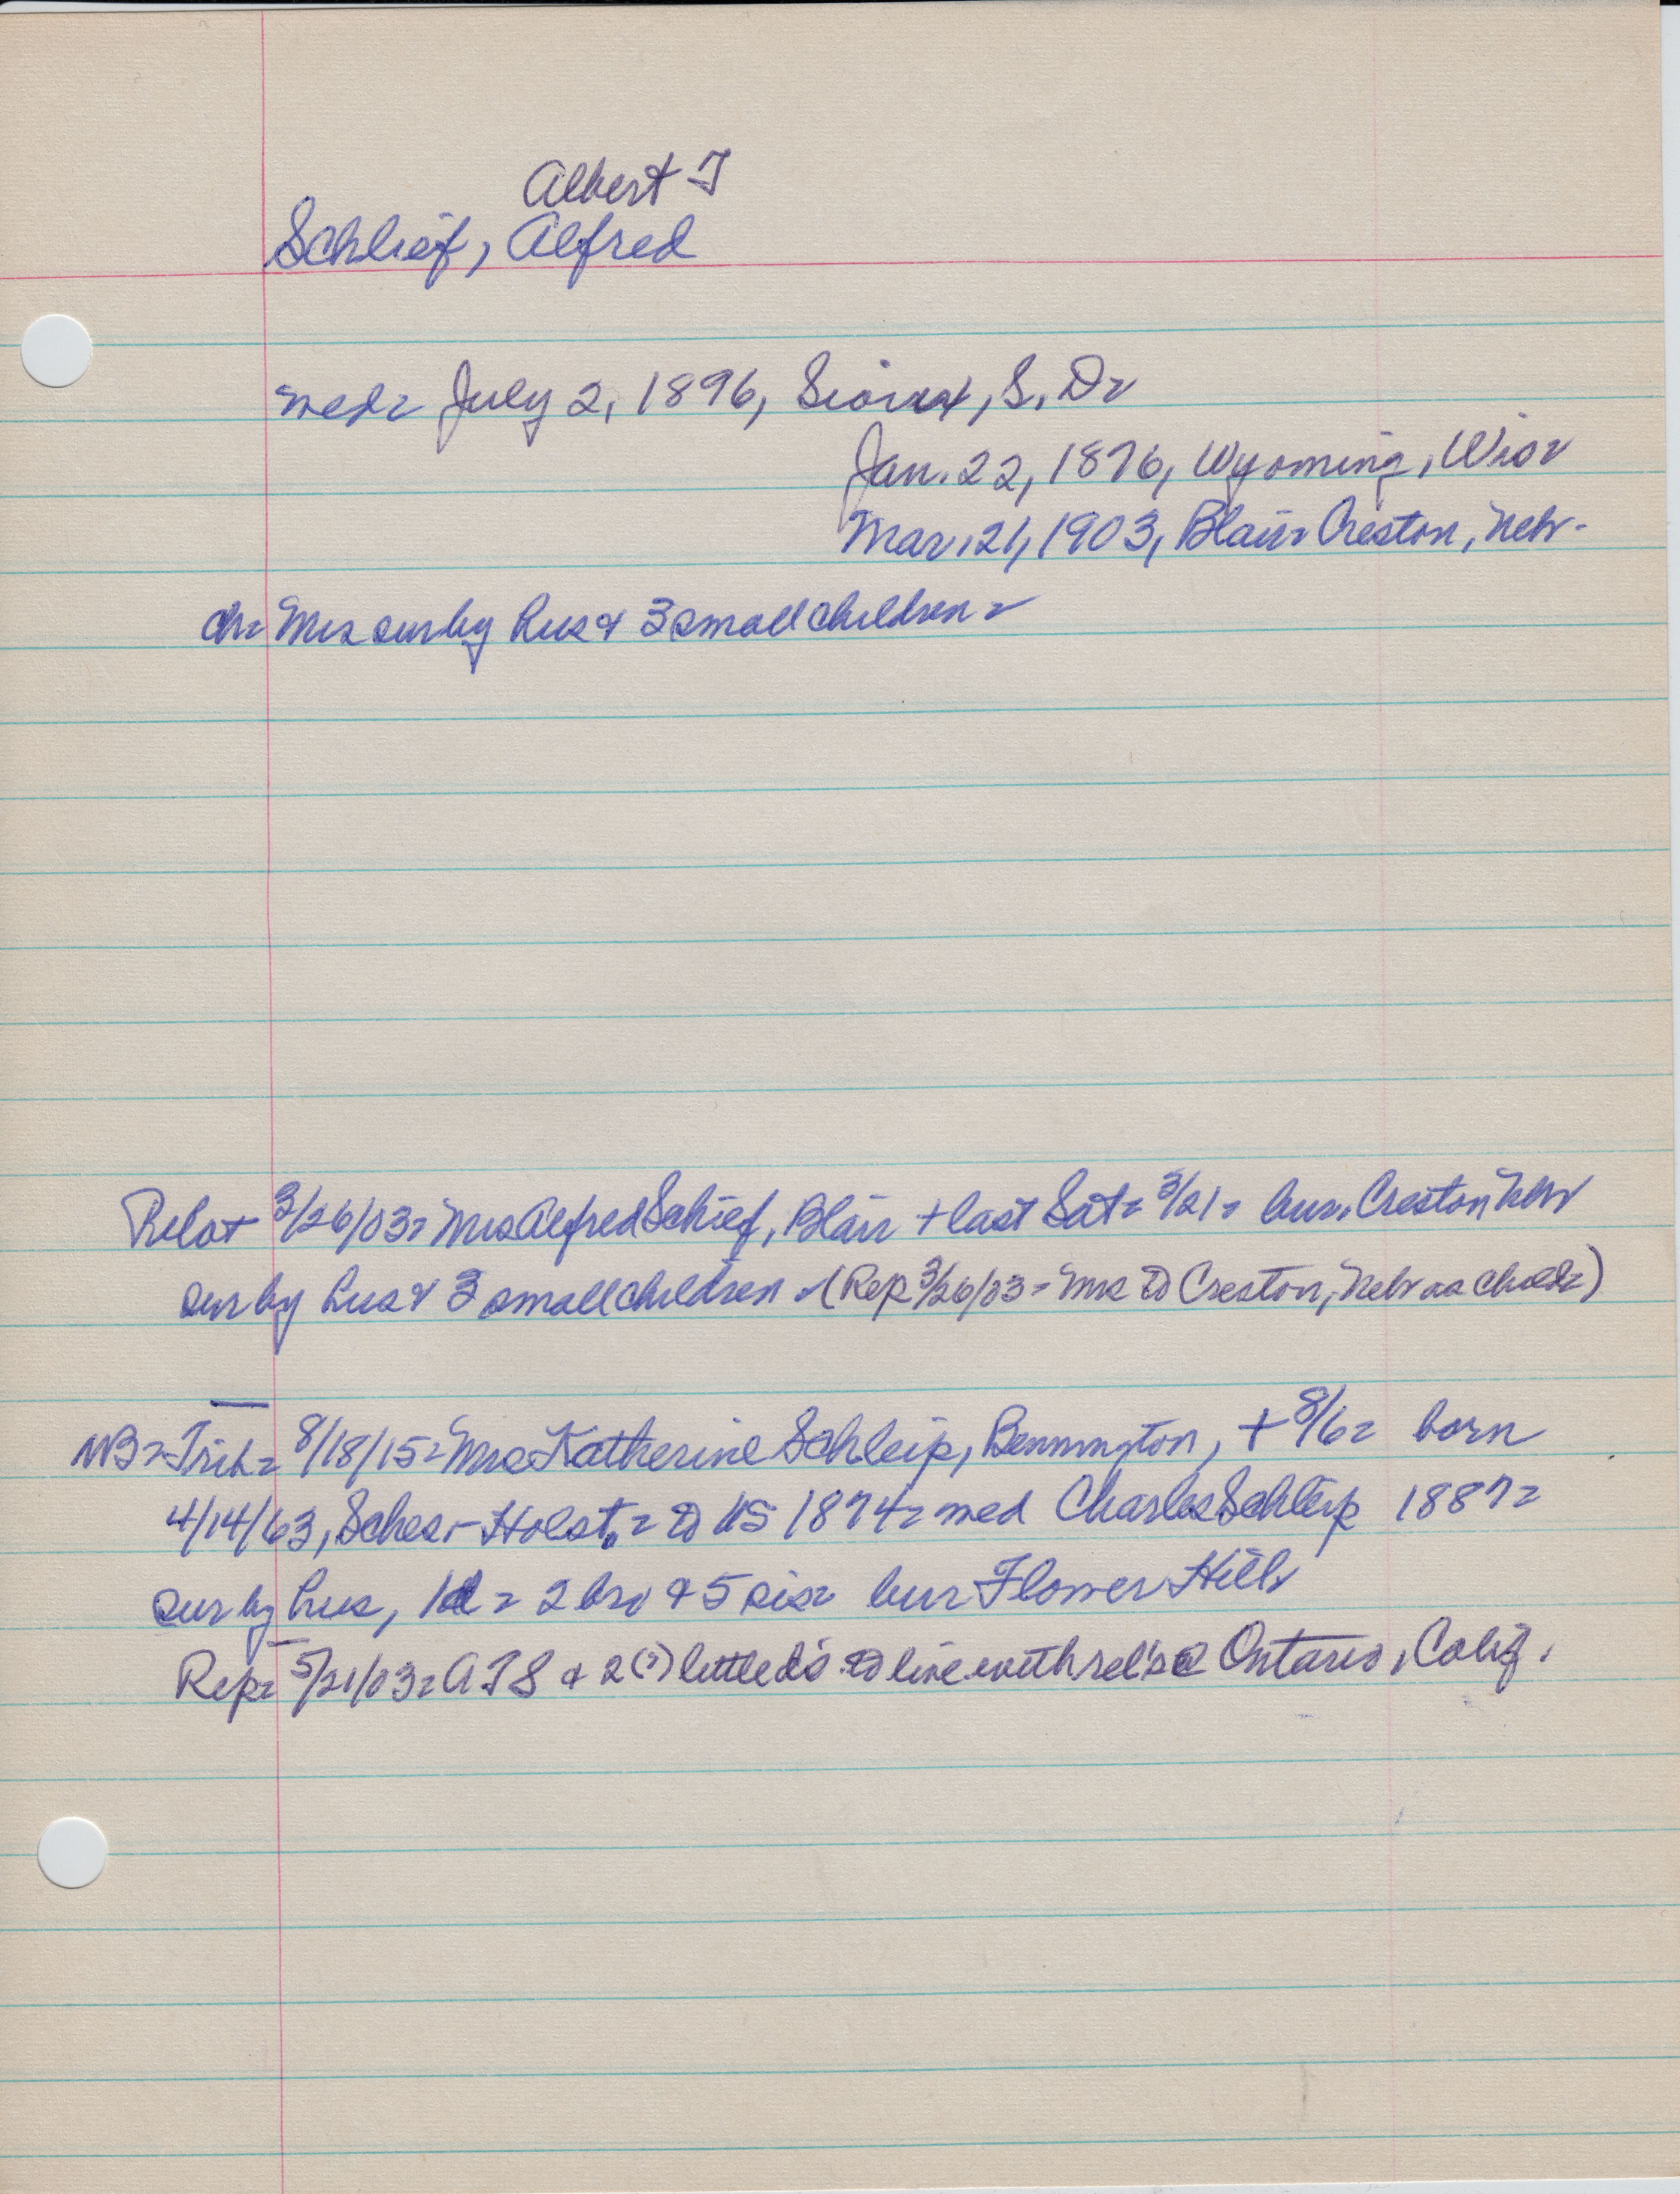 Albert T
Schlief, Alfred
med= July 2, 1896, Sioux, S. D=
Jan. 22, 1876, Wyoming, Wis=
Mar. 21, 1903, Blair= Creston, Nebr.
ch= Mrs sur by hus & 3 small children=
Pilot 3/26/03= Mrs Alfred Schief, Blair + last Sat= 3/21= bur. Creston Nebr
sur by hus & 3 small children (Rep 3/26/03= Mrs to Creston, Nebr as child=)
NB= Trib= 8/18/15= Mrs Katherine Schleip, Bennington, + 8/6= born
4/14/63, Schles.-Holst.= to US 1874= med Charles Schleip 1887=
sur by hus, 1d= 2 bro & 5 sis= bur Flower Hill=
Rep= 5/21/03= ATS & 2(?) little d's to live with rel's @ Ontario, Calif.